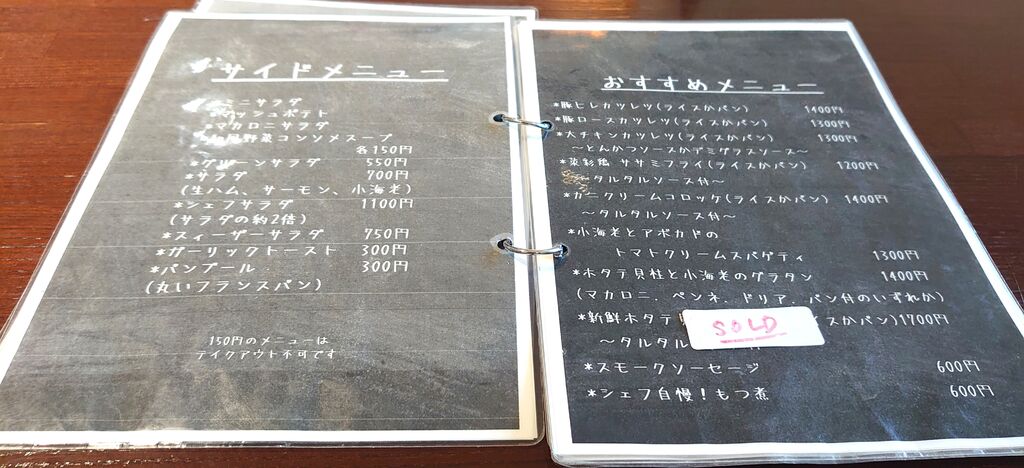 サイドメニュー
ミニサラダ
*マッシュポテト
*マカロニサラダ
野菜コンソメスープ
各150円
*グリーンサラダ 550円
*サラダ 700円
(生ハム、サーモン、小海老)
*シェフサラダ 1100円
(サラダの約2倍)
*スィーザーサラダ 750円
*ガーリックトースト 300円
*パンブール 300円
(丸いフランスパン)
150円のメニューは
テイクアウト不可です
おすすめメニュー
*豚ヒレカツレツ(ライスかパン) 1400円
*豚ロースカツレツ(ライスかパン) 1300円
*大チキンカツレツ(ライスかパン) 1300円
～とんかつソースかデミグラスソース～
*菜彩鶏 ササミフライ(ライスかパン) 1200円
タルタルソース付～
*カニクリームコロッケ(ライスかパン) 1400円
～タルタルソース付～
*小海老とアボカドの
トマトクリームスパゲティ 1300円
*ホタテ貝柱と小海老のグラタン 1400円
(マカロニ、ペンネ、ドリア、パン付のいずれか)
*新鮮ホタテ イスかパン)1700円
SOLD
～タルタル 付～
*スモークソーセージ 600円
*シェフ自慢!もつ煮 600円